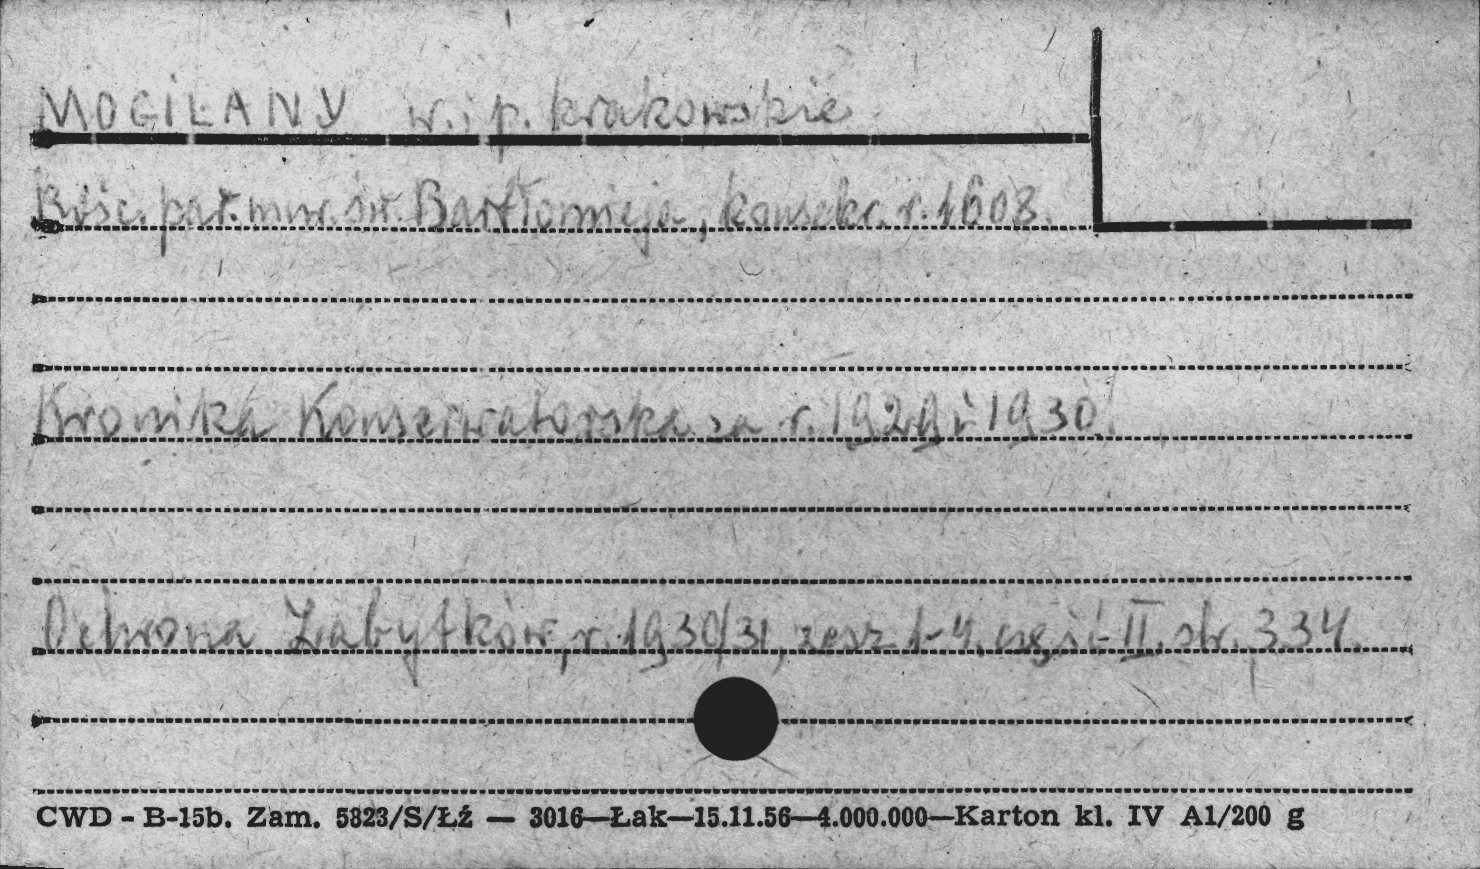 MOGILANY w. i p. krakowskie
Kośc. par. mur. św. Bartłomieja, konsekr. r. 1608.
Kronika Konserwatorska za r. 1929 i 1930.
Ochrona Zabytków, r. 1930/31, zesz. 1-4. część II. str. 334.
CWD - B-15b. Zam. 5323/S/Łź — 3016—Łak—15.11.56—4.000.000—Karton kl. IV A1/200 g